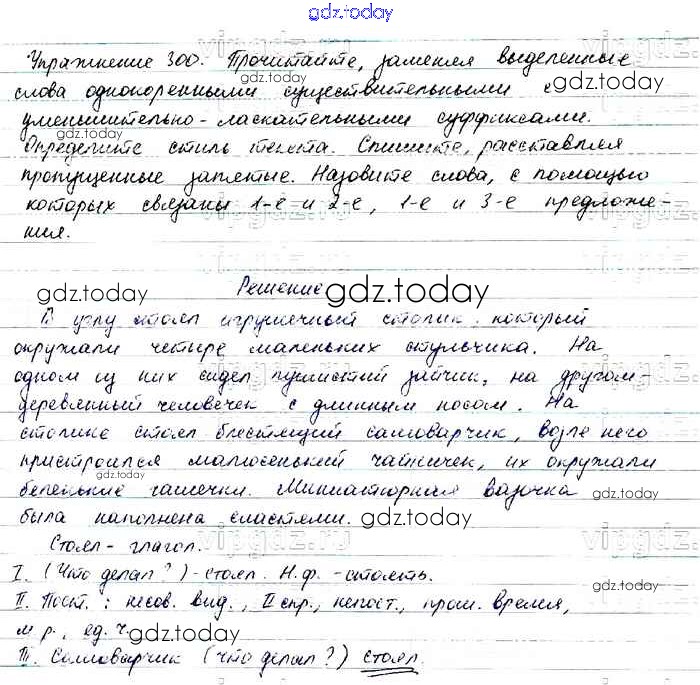 gdz.today
Упражнение 300. Прочитайте, заменяя выделенные
gdz.today
слова однокоренными существительными с
gdz.today
уменьшительно-ласкательными суффиксами.
gdz.today
Определите стиль текста. Спишите, расставляя
пропущенные запятые. Назовите слова, с помощью
которых связаны 1-е и 2-е, 1-е и 3-е предложе-
ния.
gdz.today
Решение
gdz.today
В углу стоял игрушечный столик, который
окружали четыре маленьких стульчика. На
одном из них сидел пушистый зайчик, на другом-
деревянный человечек с длинным носом. На
столике стоял блестящий самоварчик, возле него
пристроился малюсенький чайничек, их окружали
gdz.today
беленькие чашечки. Миниатюрная вазочка
была наполнена сластями.
gdz.today
Стоял - глагол.
vipgdz.ru
I. (Что делал?) - стоял. Н.ф. - стоять.
gdz.today
II. Пост.: несов. вид., II спр., непост., прош. время,
м.р., ед. ч.
gdz.today
III. Самоварчик (что делал?) стоял.
gdz.today